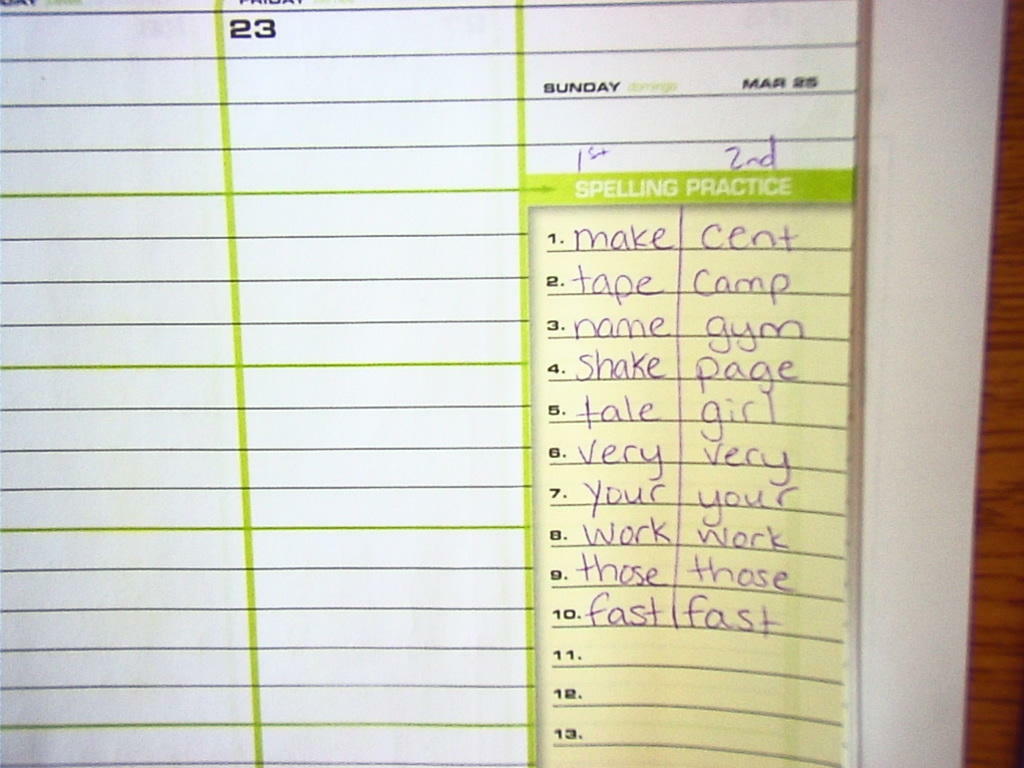 FRIDAY
23
SUNDAY domingo MAR 25
1st 2nd
SPELLING PRACTICE
1. make cent
2. tape camp
3. name gym
4. shake page
5. tale girl
6. very very
7. your your
8. work work
9. those those
10. fast fast
11.
12.
13.